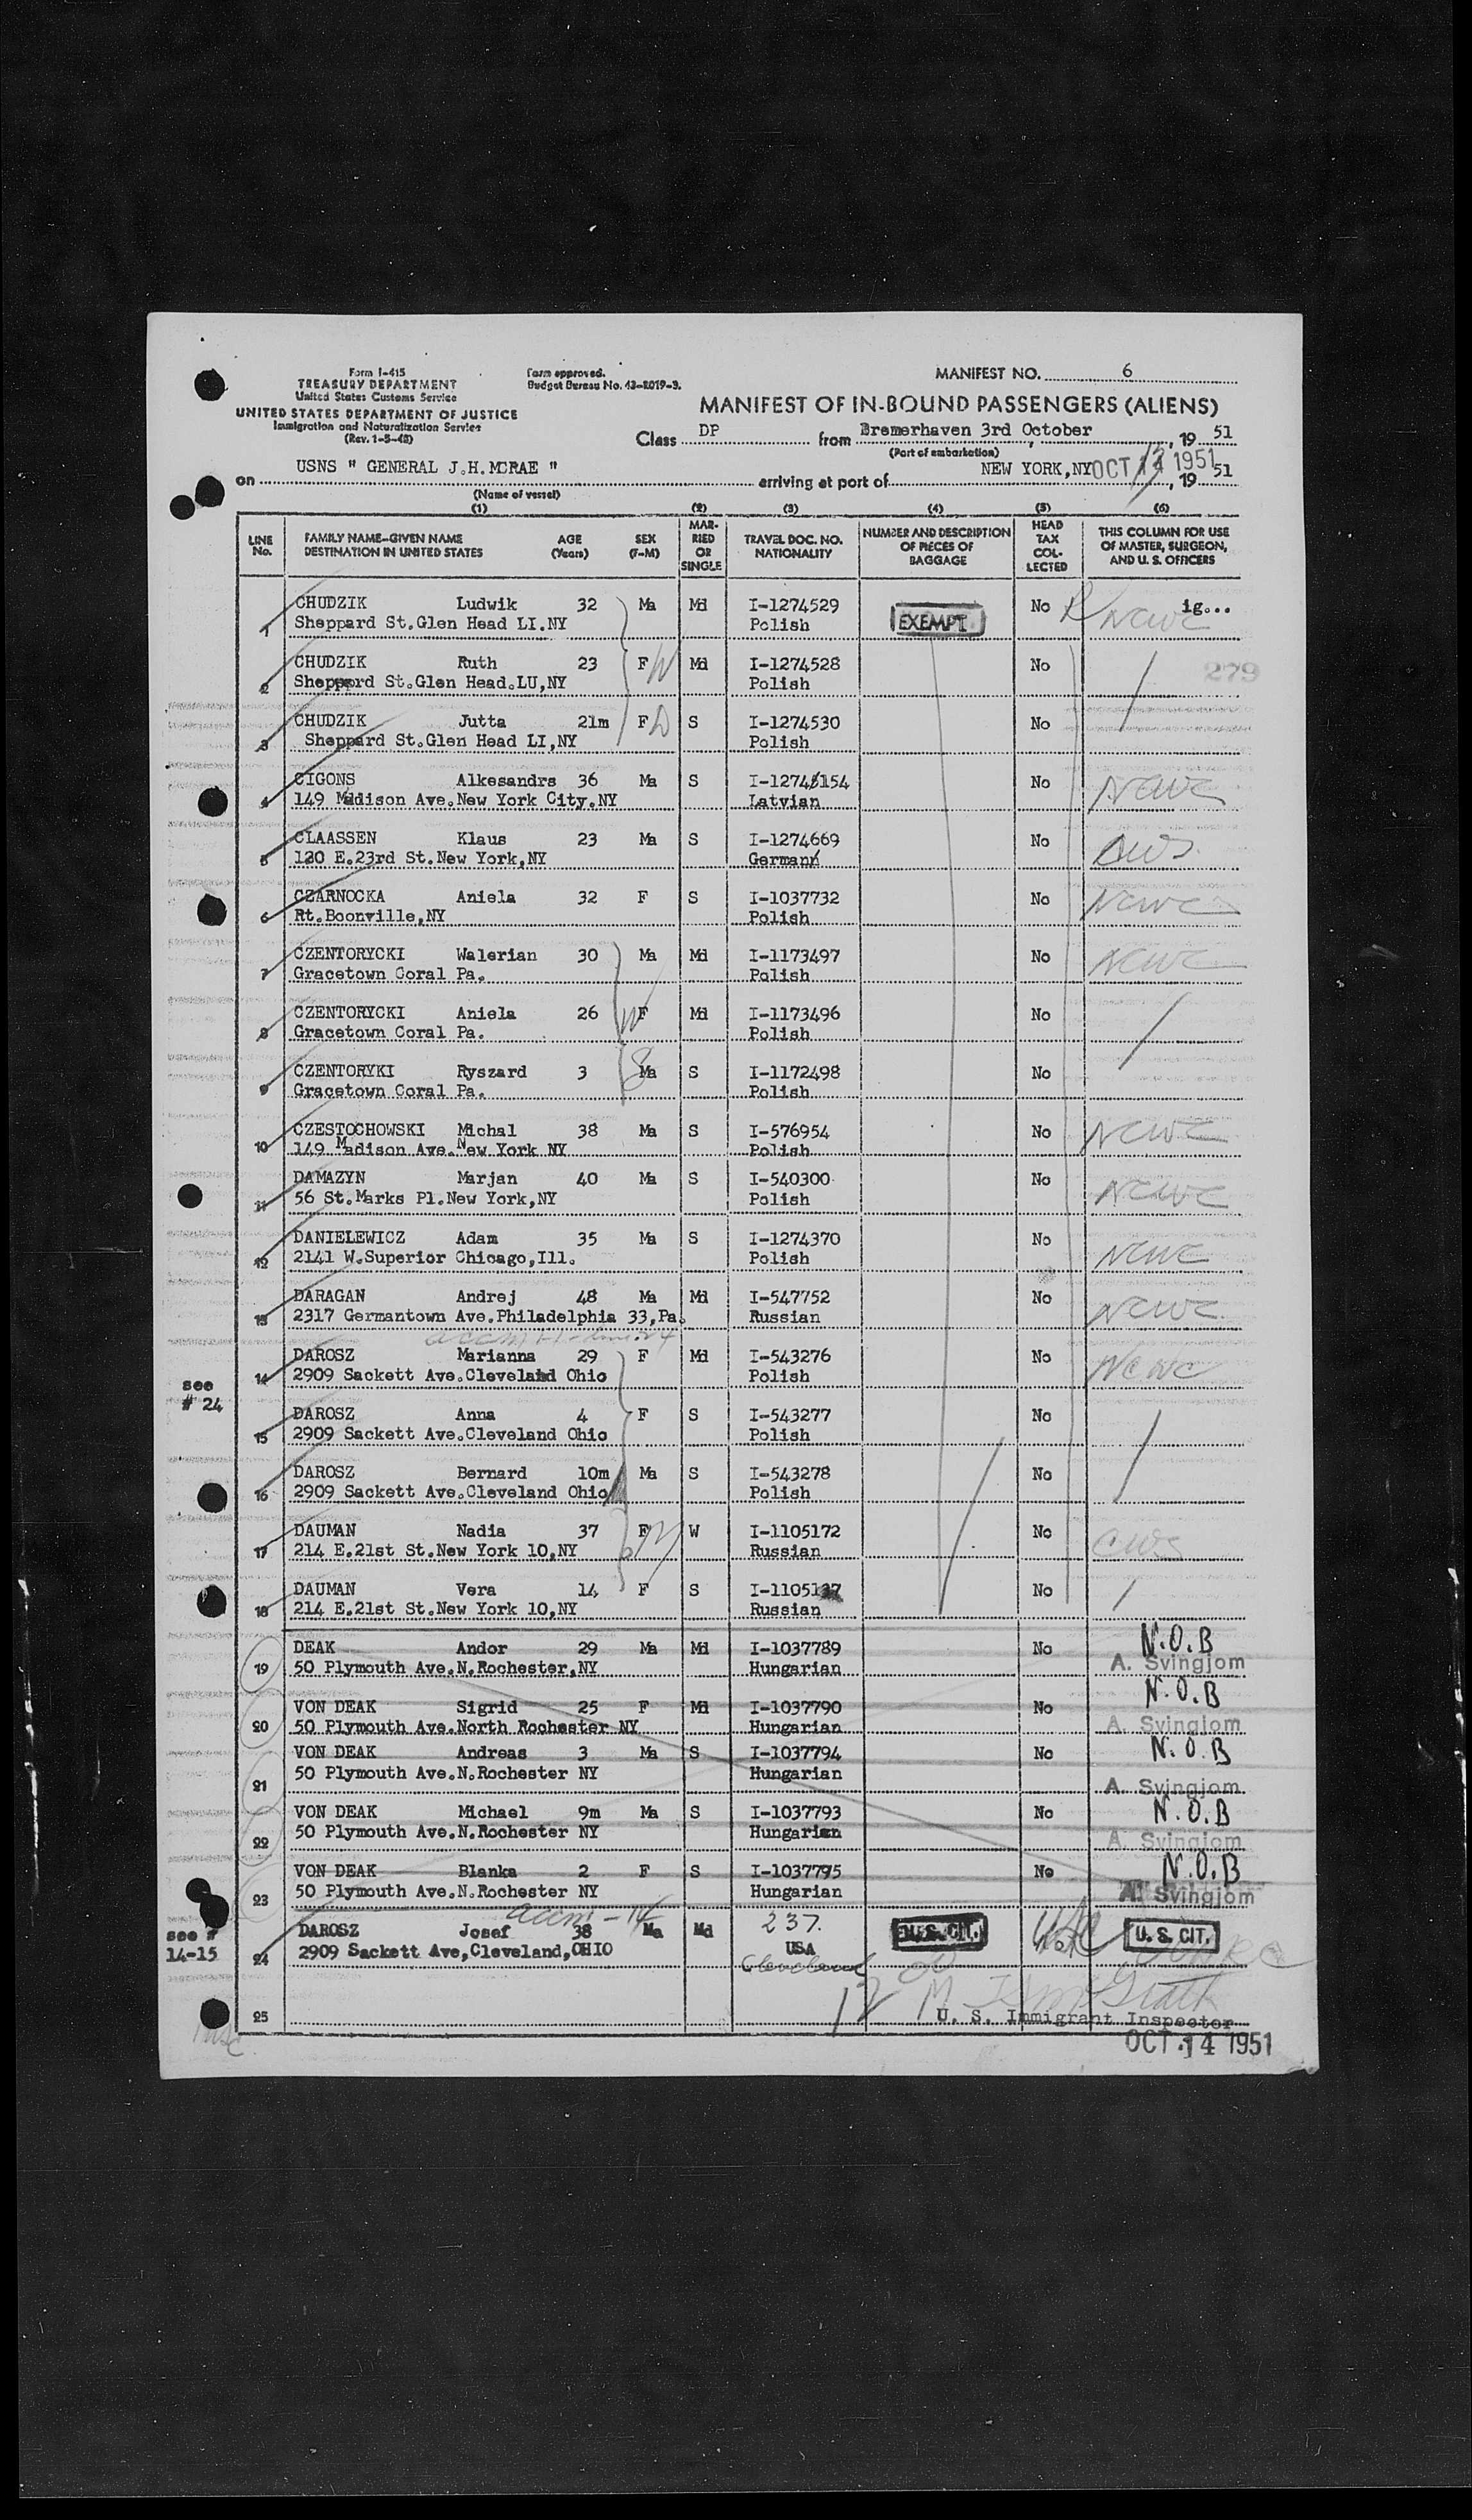 Form I-415
TREASURY DEPARTMENT
United States Customs Service
UNITED STATES DEPARTMENT OF JUSTICE
Immigration and Naturalization Service
(Rev. 1-5-48)
Form approved.
Budget Bureau No. 43-R019-3.
MANIFEST NO. 6
MANIFEST OF IN-BOUND PASSENGERS (ALIENS)
Class DP from Bremerhaven 3rd October, 19 51
(Port of embarkation)
on USNS " GENERAL J.H.MCRAE " arriving at port of NEW YORK,NY OCT 1951, 19 51
(Name of vessel)
(1) (2) (3) (4) (5) (6)
LINE No. FAMILY NAME-GIVEN NAME DESTINATION IN UNITED STATES AGE (Years) SEX (F-M) MAR-RIED OR SINGLE TRAVEL DOC. NO. NATIONALITY NUMBER AND DESCRIPTION OF PIECES OF BAGGAGE HEAD TAX COL-LECTED THIS COLUMN FOR USE OF MASTER, SURGEON, AND U. S. OFFICERS
CHUDZIK Ludwik 32 Ma Md I-1274529 EXEMPT No NCWC ig...
1 Sheppard St.Glen Head LI.NY Polish
CHUDZIK Ruth 23 F W Md I-1274528 No 279
2 Sheppord St.Glen Head.LU,NY Polish
CHUDZIK Jutta 21m F D S I-1274530 No
3 Sheppard St.Glen Head LI,NY Polish
CIGONS Alkesandrs 36 Ma S I-1274 154 No NCWC
4 149 Madison Ave.New York City.NY Latvian
CLAASSEN Klaus 23 Ma S I-1274669 No
5 120 E.23rd St.New York,NY German
CZARNOCKA Aniela 32 F S I-1037732 No NCWC
6 Rt.Boonville,NY Polish
CZENTORYCKI Walerian 30 Ma Md I-1173497 No NCWC
7 Gracetown Coral Pa. Polish
CZENTORYCKI Aniela 26 W F Md I-1173496 No
8 Gracetown Coral Pa. Polish
CZENTORYKI Ryszard 3 S Ma S I-1172498 No
9 Gracetown Coral Pa. Polish
CZESTOCHOWSKI Michal 38 Ma S I-576954 No NCWC
10 149 Madison Ave.New York NY Polish
DAMAZYN Marjan 40 Ma S I-540300 No NCWC
11 56 St.Marks Pl.New York,NY Polish
DANIELEWICZ Adam 35 Ma S I-1274370 No NCWC
12 2141 W.Superior Chicago,Ill. Polish
DARAGAN Andrej 48 Ma Md I-547752 No NCWC
13 2317 Germantown Ave.Philadelphia 33,Pa. Russian
DAROSZ Marianna 29 F Md I-543276 No NCWC
14 2909 Sackett Ave.Cleveland Ohio Polish
see # 24
DAROSZ Anna 4 F S I-543277 No
15 2909 Sackett Ave.Cleveland Ohio Polish
DAROSZ Bernard 10m Ma S I-543278 No
16 2909 Sackett Ave.Cleveland Ohio Polish
DAUMAN Nadia 37 F W I-1105172 No CWS
17 214 E.21st St.New York 10,NY Russian
DAUMAN Vera 14 F S I-1105137 No
18 214 E.21st St.New York 10,NY Russian
DEAK Andor 29 Ma Md I-1037789 No N.O.B
19 50 Plymouth Ave.N.Rochester,NY Hungarian A. Svingjom
VON DEAK Sigrid 25 F Md I-1037790 No N.O.B
20 50 Plymouth Ave.North Rochester NY Hungarian A. Svingjom
VON DEAK Andreas 3 Ma S I-1037794 No N.O.B
21 50 Plymouth Ave.N.Rochester NY Hungarian A. Svingjom
VON DEAK Michael 9m Ma S I-1037793 No N.O.B
22 50 Plymouth Ave.N.Rochester NY Hungarian A. Svingjom
VON DEAK Blanka 2 F S I-1037795 No N.O.B
23 50 Plymouth Ave.N.Rochester NY Hungarian A. Svingjom
accm - 14
see # 14-15
DAROSZ Josef 38 Ma Md 237. U.S. CIT. U. S. CIT.
24 2909 Sackett Ave,Cleveland,OHIO USA
Cleveland
25 U. S. Immigrant Inspector
OCT 14 1951